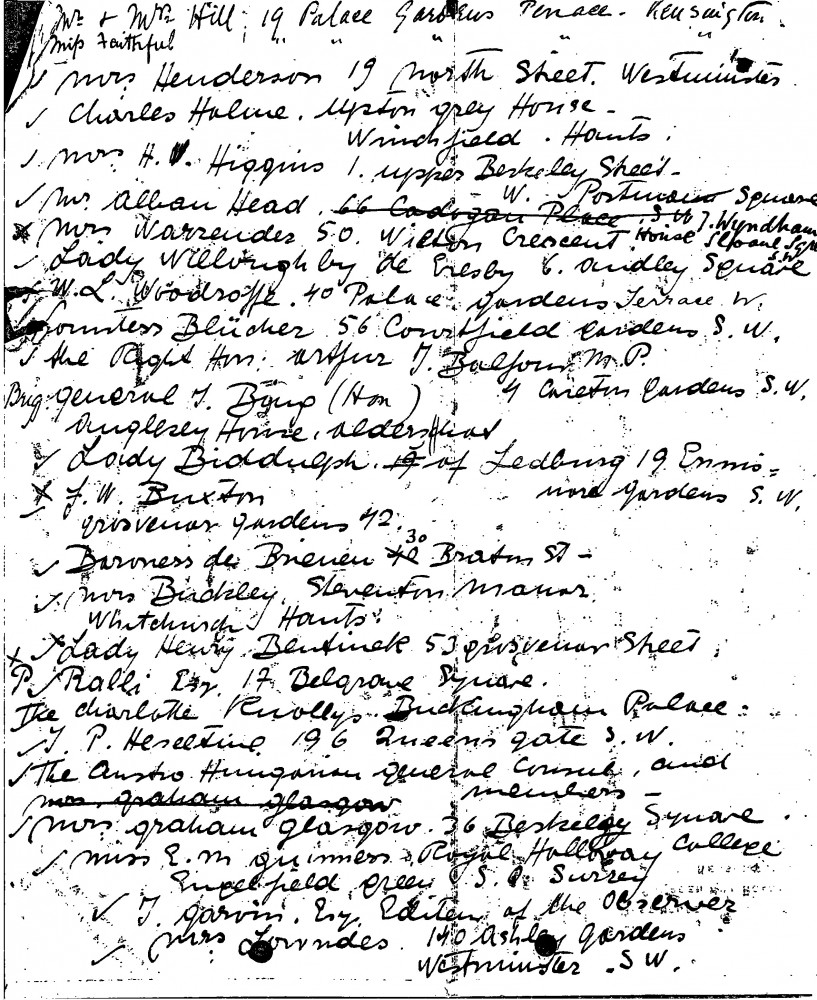 Mr & Mrs Hill, 19 Palace Gardens Terrace - Kensington.
Miss Faithful " " " " "
✓ Mrs Henderson 19 North Street. Westminster
✓ Charles Holme. Upton grey House -
Winchfield. Hants.
✓ Mrs H. V. Higgins 1. upper Berkeley Street -
W. Portman Square
✓ Mr Alban Head. 66 Cadogan Place. S.W. 7. Wyndham
x Mrs Warrender 50. Wilton Crescent House Sloane Sqre
S.W.
✓ Lady Willoughby de Eresby 6. Audley Square
x W. L. Woodroffe. 40 Palace gardens Terrace W.
Countess Blücher 56 Courtfield gardens S. W.
✓ the Right Hon: Arthur J. Balfour M. P.
4 Carlton gardens S.W.
Brig general J. Byng (Hon)
Anglesey House. Aldershot
✓ Lady Biddulph 19 of Ledbury 19 Ennis=
more gardens S. W.
x ✓ J. W. Buxton
grosvenor gardens 42.
✓ Baroness de Brienen 40 30 Bruton St -
✓ Mrs Buckley, Steventon Manor.
Whitchurch Hants.
x ✓ x Lady Henry Bentinck 53 grosvenor Street.
P. ✓ Ralli Esq 17 Belgrave Square.
The Charlotte Knollys. Buckingham Palace.
✓ J. P. Heseltine 196 Queens gate S. W.
✓ The Austro Hungarian general Consul, and
members -
Mrs. graham glasgow
✓ Mrs graham glasgow. 36 Berkeley Square.
✓ Miss E. M guinness Royal Holloway College
Englefield green S. O. Surrey
✓ J. garvin. Esq. Editor of the Observer
✓ Mrs Lowndes. 140 Ashley gardens
Westminster. S W.